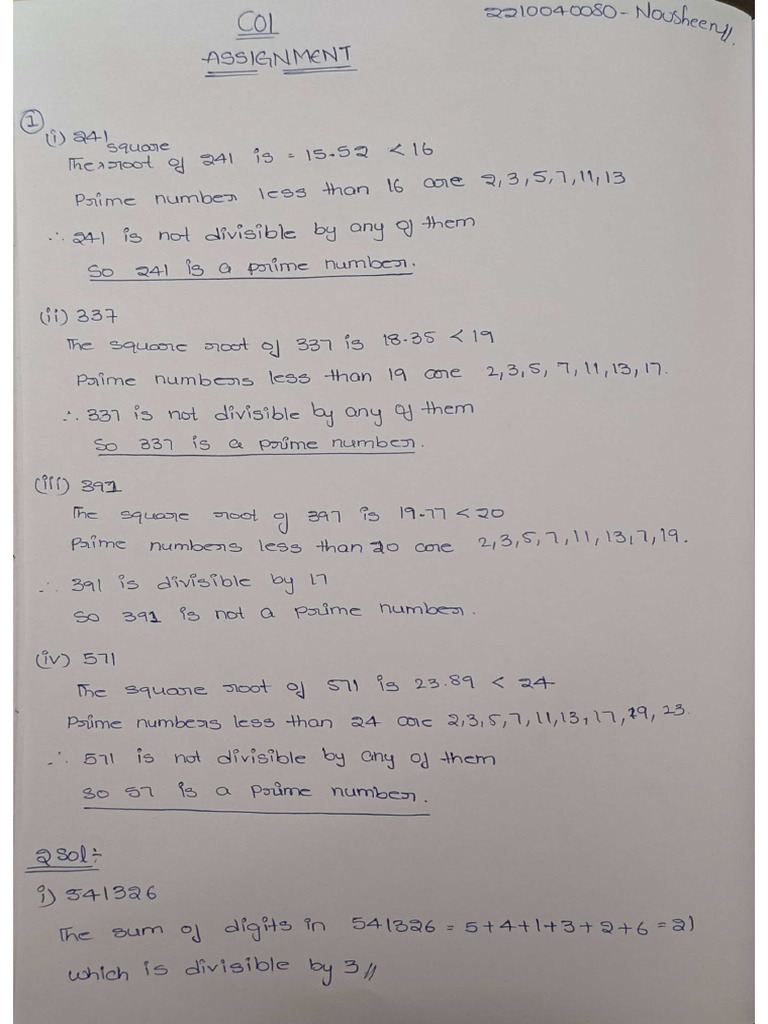 CO1
2210040080 - Nousheen//.
ASSIGNMENT
① (i) 241
square
The root of 241 is = 15.52 < 16
Prime number less than 16 are 2,3,5,7,11,13
∴ 241 is not divisible by any of them
So 241 is a prime number.
(ii) 337
The square root of 337 is 18.35 < 19
Prime numbers less than 19 are 2,3,5,7,11,13,17.
∴ 337 is not divisible by any of them
So 337 is a prime number.
(iii) 391
The square root of 397 is 19.77 < 20
Prime numbers less than 20 are 2,3,5,7,11,13,7,19.
∴ 391 is divisible by 17
So 391 is not a prime number.
(iv) 571
The square root of 571 is 23.89 < 24
Prime numbers less than 24 are 2,3,5,7,11,13,17,19,23.
∴ 571 is not divisible by any of them
So 57 is a prime number.
2 Sol:-
i) 541326
The sum of digits in 541326 = 5+4+1+3+2+6 = 21
which is divisible by 3//